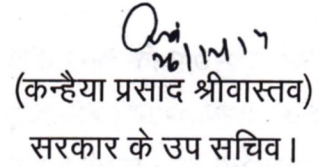 (कन्हैया प्रसाद श्रीवास्तव)
सरकार के उप सचिव।